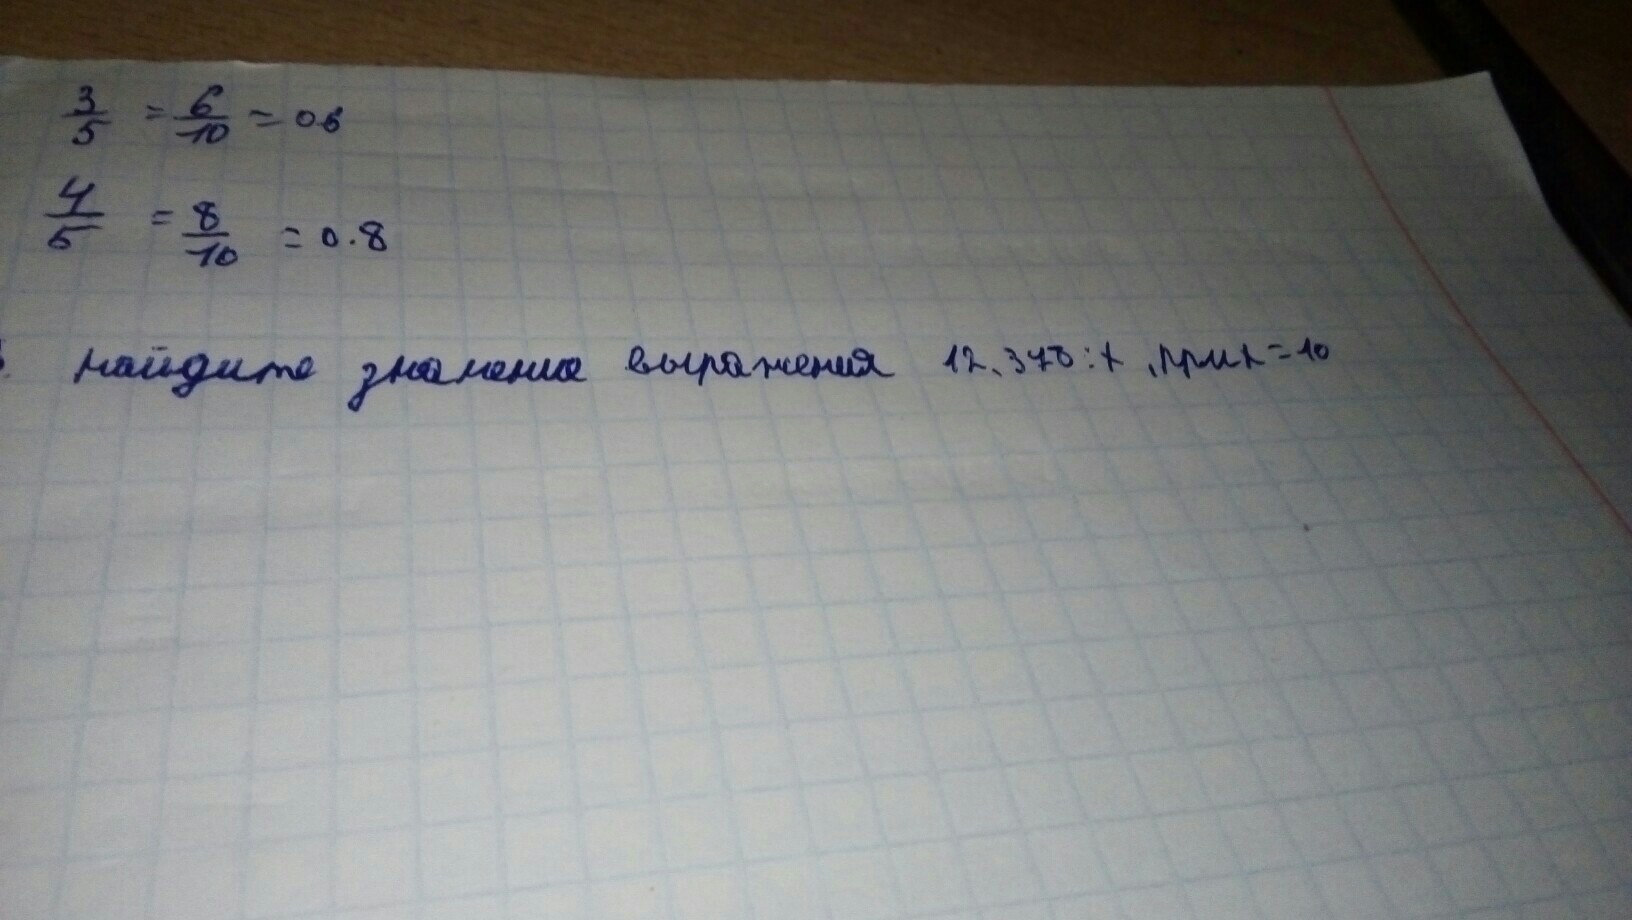 3/5 = 6/10 = 0.6
4/5 = 8/10 = 0.8
найдите значение выражения 12.378:к, при к=10